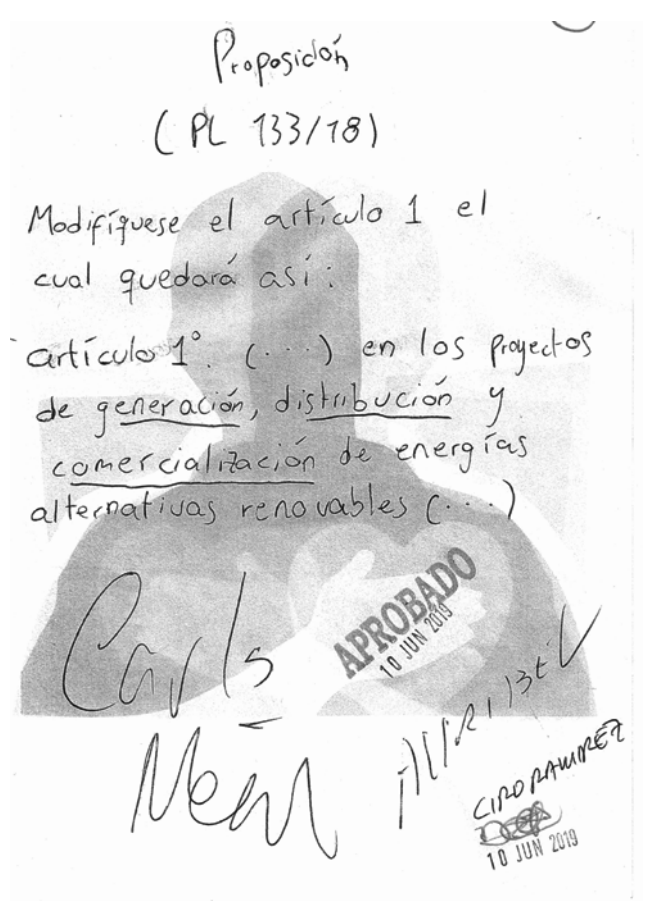 Proposición
(PL 133/18)
Modifíquese el artículo 1 el
cual quedará así:
artículo 1°. (...) en los proyectos
de generación, distribución y
comercialización de energías
alternativas renovables (...)
APROBADO
10 JUN 2019
Carls
CIRO RAMIREZ
10 JUN 2019